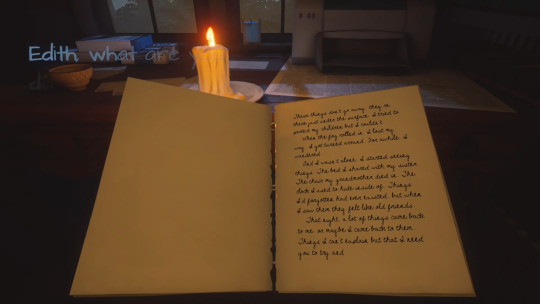 Edith what are
These things don't go away. they're
there just under the surface. I tried to
protect my children but I couldn't.
When the fog rolled in, I lost my
way. I got turned around. For awhile, I
wandered.
And I wasn't alone. I started seeing
things. The bed I shared with my sister.
The chair my grandmother died in. The
dock I used to hide inside of. Things
I'd forgotten had ever existed. but when
I saw them they felt like old friends.
That night, a lot of things came back
to me. or maybe I came back to them.
Things I can't explain but that I need
you to try and